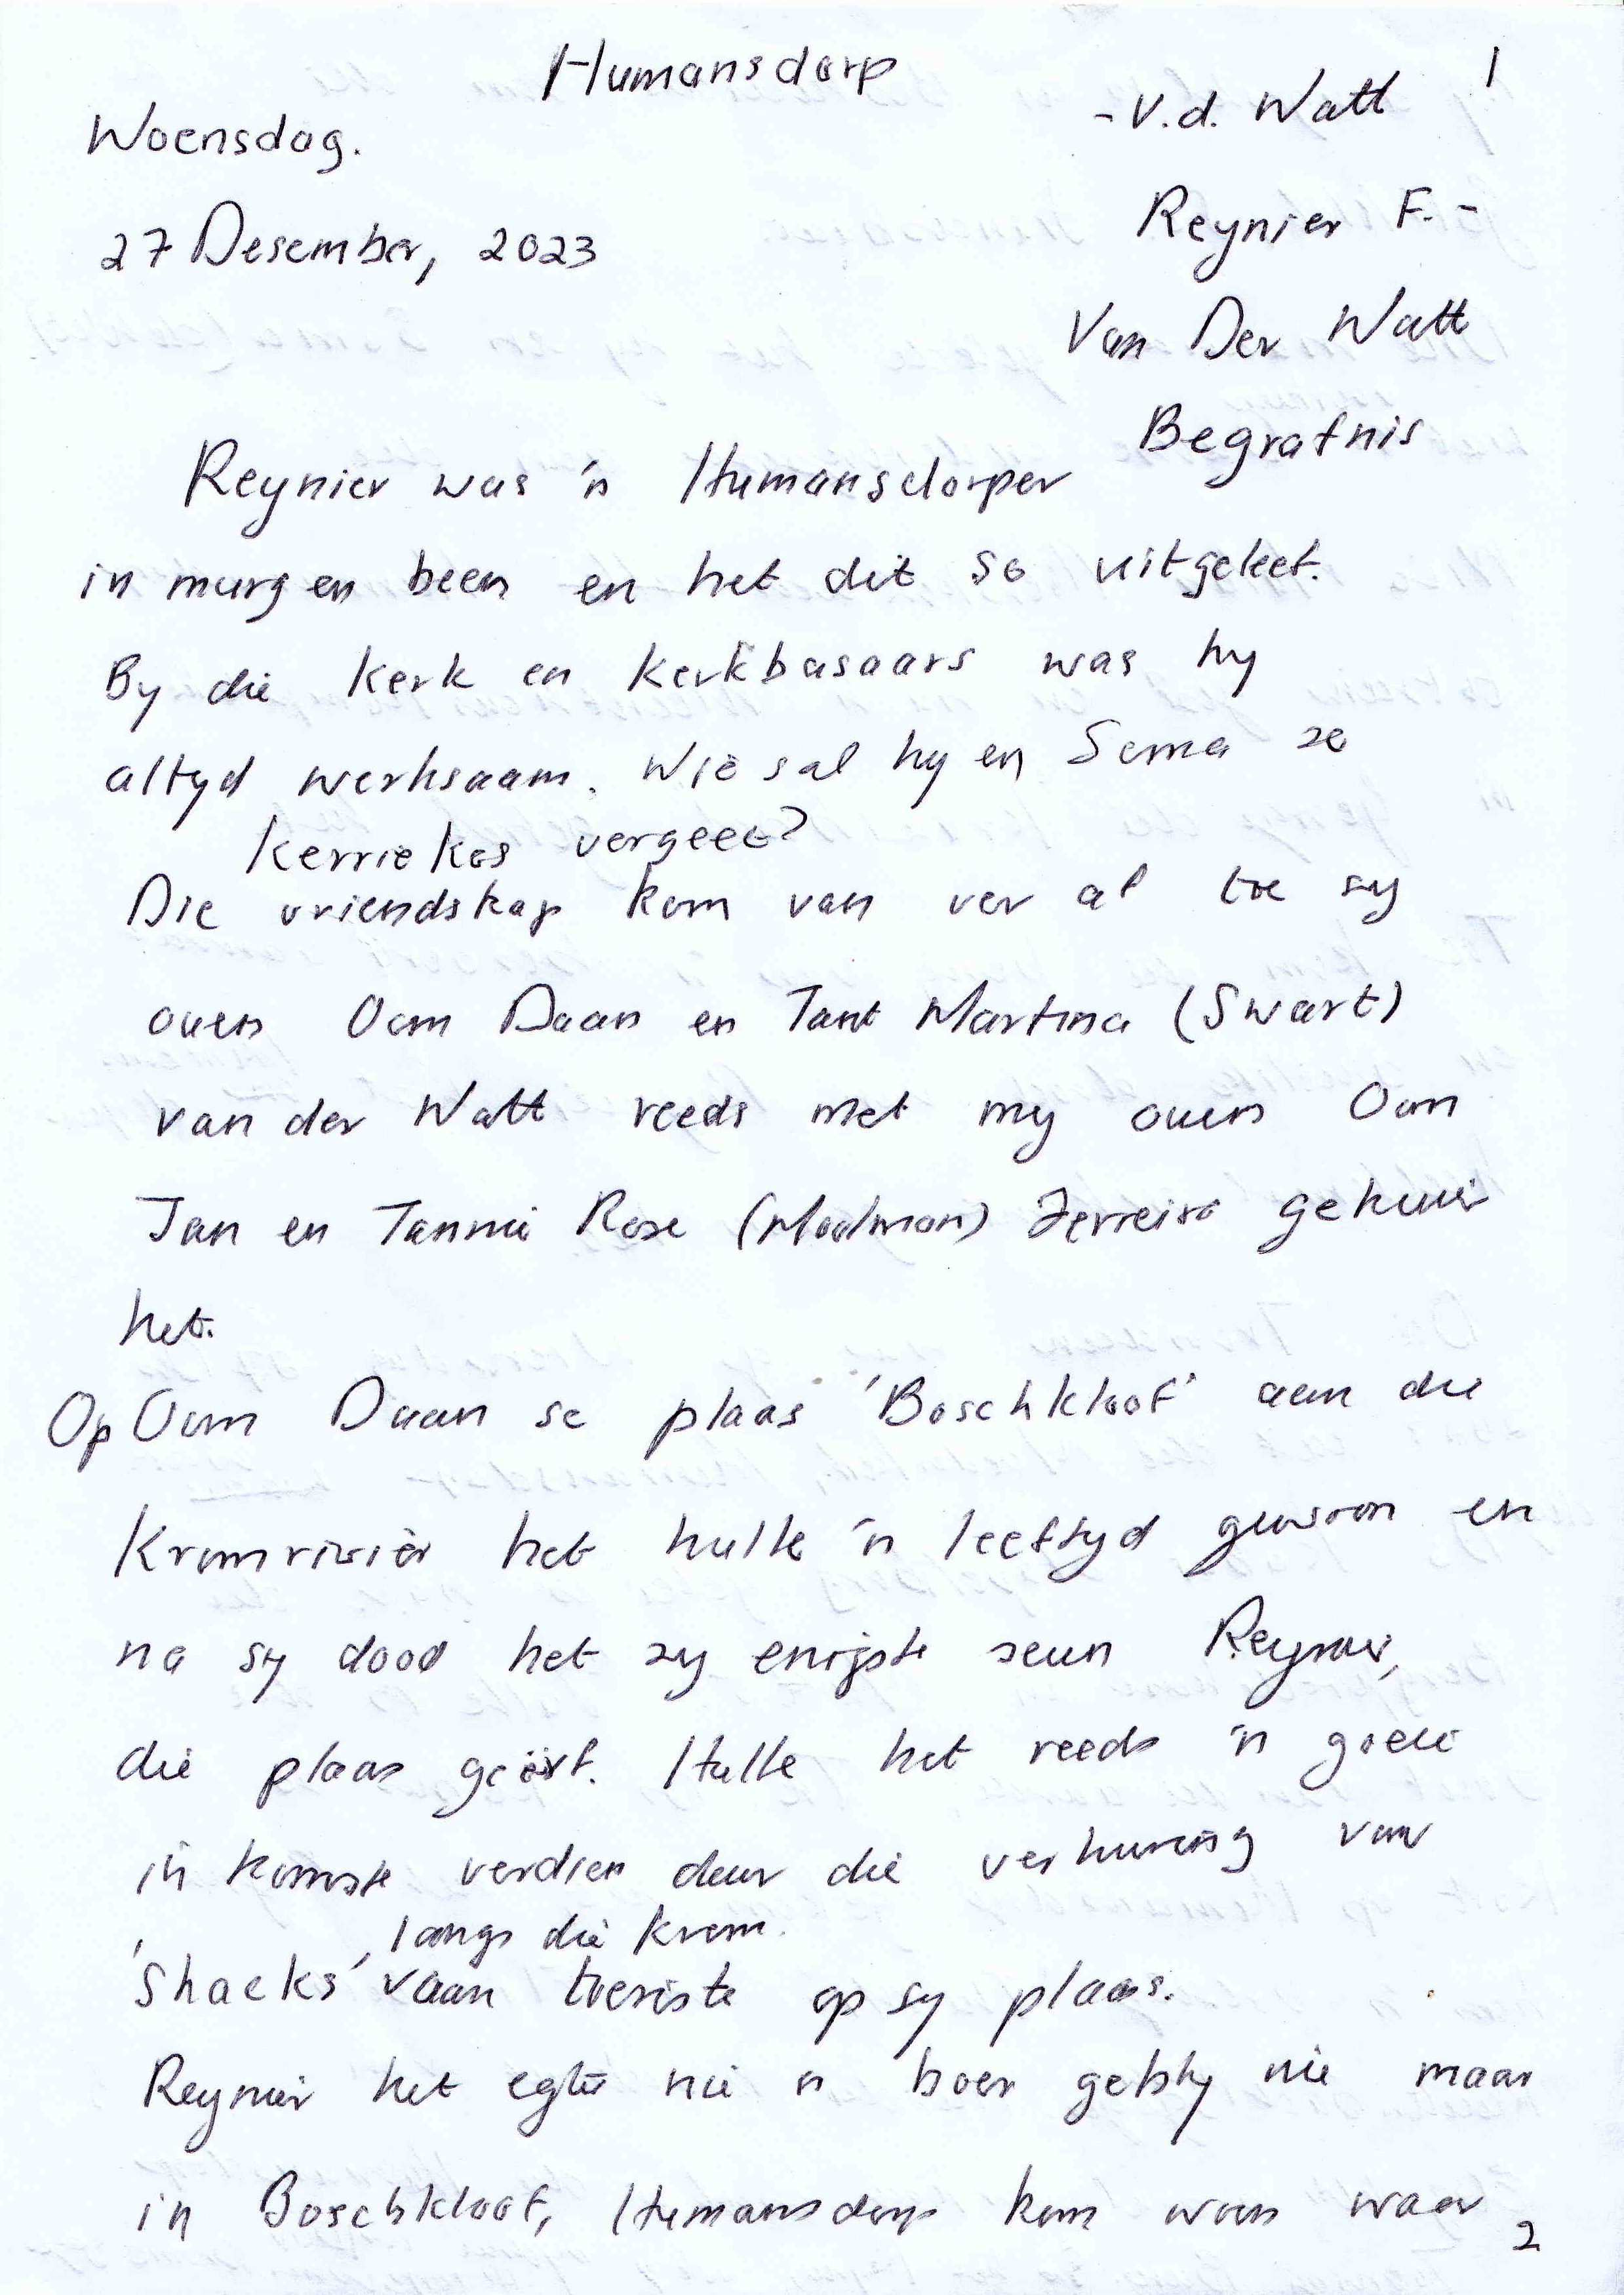 Humansdorp
1
Woensdag.
27 Desember, 2023
- V.d. Watt
Reynier F. -
Van Der Watt
Begrafnis
Reynier was 'n Humansdorper
in murg en been en het dit so uitgeleef.
By die kerk en kerkbasaars was hy
altyd werksaam. Wie sal hy en Sema se
kerriekos vergeet?
Die vriendskap kom van ver af toe sy
ouers Oom Daan en Tant Martina (Swart)
van der Watt reeds met my ouers Oom
Jan en Tannie Rose (Moolman) Ferreira gekuier
het.
Op Oom Daan se plaas 'Boschkloof' aan die
Kromrivier het hulle 'n leeftyd gewoon en
na sy dood het sy enigste seun Reynier,
die plaas geërf. Hulle het reeds 'n goeie
inkomste verdien deur die verhuring van
langs die Krom.
'Shacks' vaan toeriste op sy plaas.
Reynier het egter nie 'n boer gebly nie maar
in Boschkloof, Humansdorp kom woon waar
2